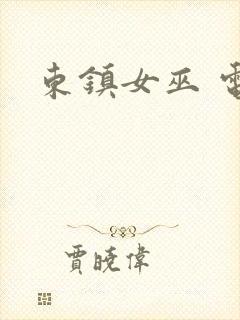 東鎮女巫
賈曉偉